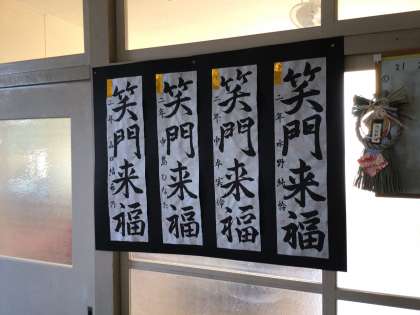 笑門来福
笑門来福
二年
笑門来福
二年 中島ひなた
笑門来福
二年
21